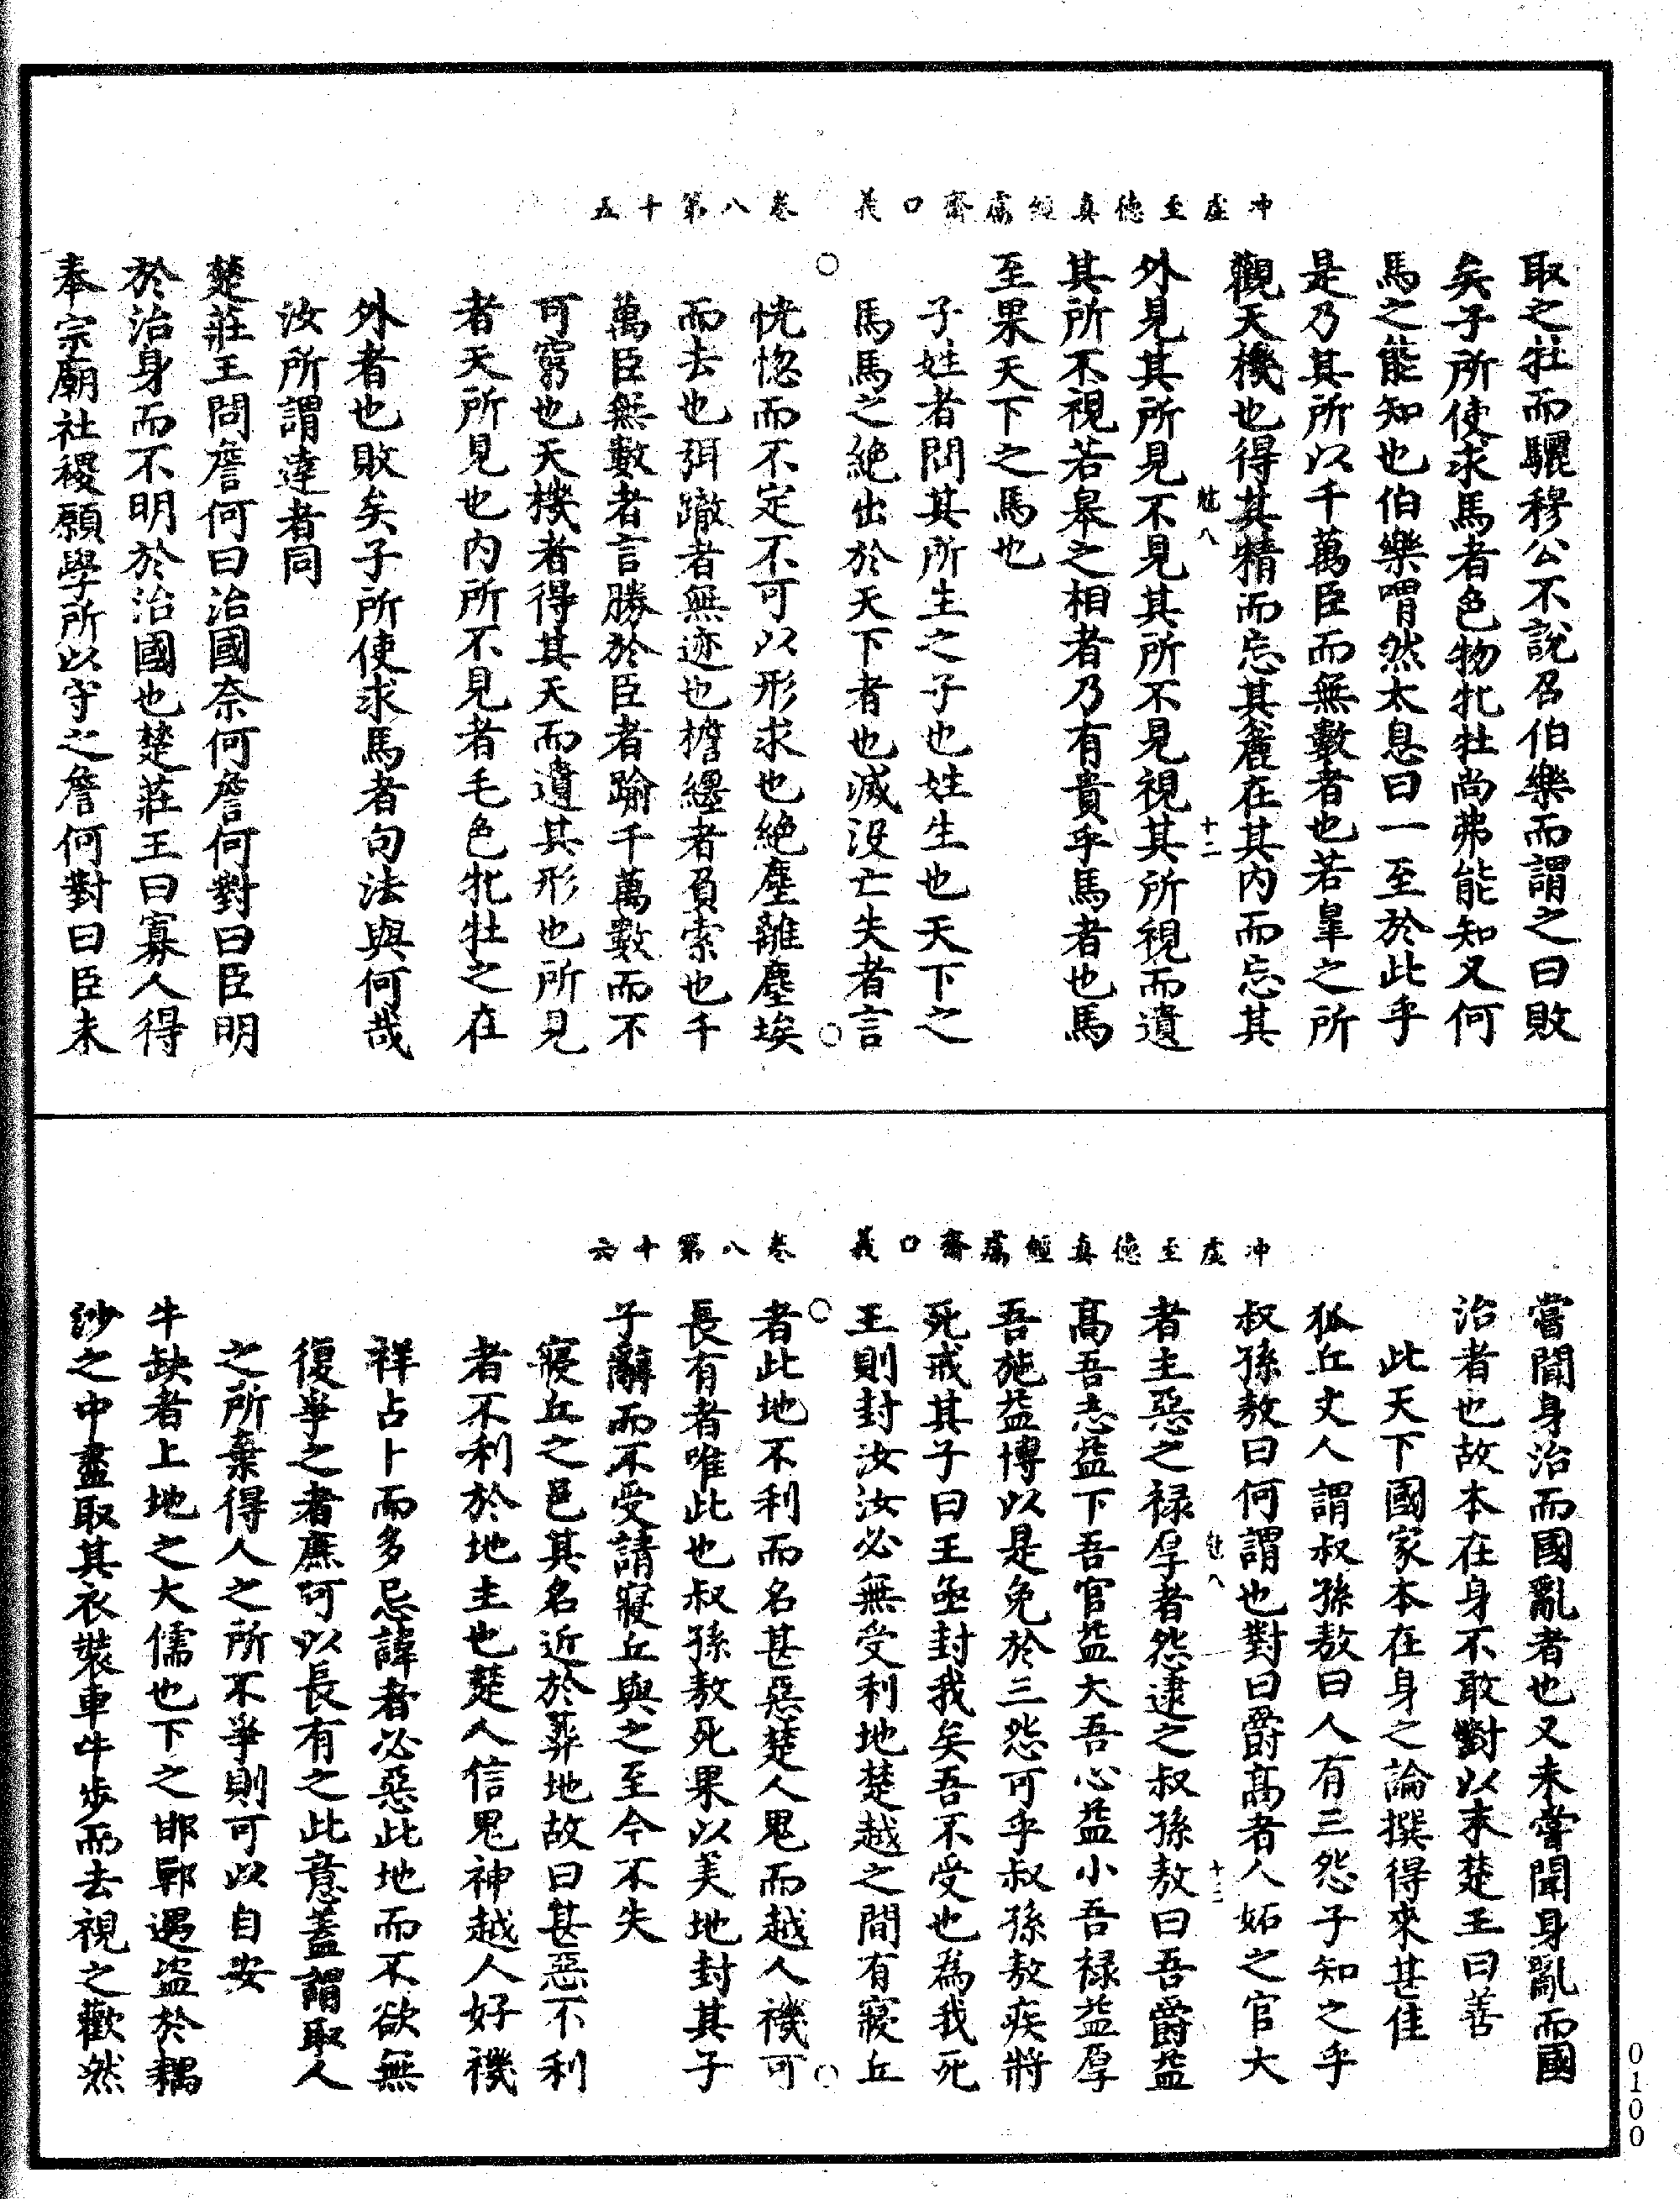 冲虛至德真經鬳齋口義　卷八第十五
取之牡而驪穆公不說召伯樂而謂之曰敗
矣子所使求馬者色物牝牡尚弗能知又何
馬之能知也伯樂喟然太息曰一至於此乎
是乃其所以千萬臣而無數者也若臯之所
觀天機也得其精而忘其麄在其內而忘其
魭八　十二
外見其所見不見其所不見視其所視而遺
其所不視若皋之相者乃有貴乎馬者也馬
至果天下之馬也
子姓者問其所生之子也姓生也天下之
馬馬之絶出於天下者也滅没亡失者言
恍惚而不定不可以形求也絶塵離塵埃
而去也弭蹤者無迹也檐纆者負索也千
萬臣無數者言勝於臣者踰千萬數而不
可窮也天機者得其天而遺其形也所見
者天所見也內所不見者毛色牝牡之在
外者也敗矣子所使求馬者句法與何哉
汝所謂達者同
楚莊王問詹何曰治國奈何詹何對曰臣明
於治身而不明於治國也楚莊王曰寡人得
奉宗廟社稷願學所以守之詹何對曰臣未
冲虛至德真經鬳齋口義　卷八第十六
嘗聞身治而國亂者也又未嘗聞身亂而國
治者也故本在身不敢對以末楚王曰善
此天下國家本在身之論撰得來甚佳
狐丘丈人謂叔孫敖曰人有三怨子知之乎
叔孫敖曰何謂也對曰爵高者人妬之官大
八　十三
者主惡之祿厚者怨逮之叔孫敖曰吾爵益
高吾志益下吾官益大吾心益小吾祿益厚
吾施益博以是免於三怨可乎叔孫敖疾將
死戒其子曰王亟封我矣吾不受也為我死
王則封汝汝必無受利地楚越之間有寢丘
者此地不利而名甚惡楚人鬼而越人禨可
長有者唯此也叔孫敖死果以美地封其子
子辭而不受請寢丘與之至今不失
寢丘之邑其名近於葬地故曰甚惡不利
者不利於地主也楚人信鬼神越人好禨
祥占卜而多忌諱者必惡此地而不欲無
復爭之者庶可以長有之此意蓋謂取人
之所棄得人之所不爭則可以自安
牛缺者上地之大儒也下之邯鄲遇盜於耦
沙之中盡取其衣裝車牛步而去視之歡然
0100